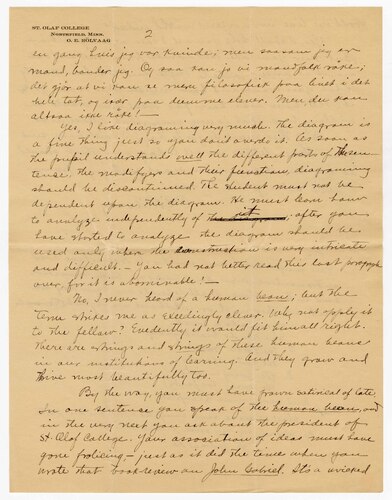 ST. OLAF COLLEGE
NORTHFIELD, MINN.
O. E. RÖLVAAG
2
en gang hvis jeg var kvinde; men saasom jeg er
mand, bander jeg. Og saa kan jo vi mandfolk røke;
det gjør at vi kan se mere filosofisk paa livet i det
hele tat, og især paa dumme elever. Men du kan
altsaa ikke røke! —
Yes, I like diagraming very much. The diagram is
a fine thing just so you don't overdo it. As soon as
the pupil understands well the different parts of the sen-
tense, the modifyers and their function, diagraming
should be discontinued. The student must not be
dependent upon the diagram. He must learn how
to analyze independently of it; after you
have started to analyze the diagram should be
used only where the construction is very intricate
and difficult. — You had not better read this last paragraph
over for it is abominable! —
No, I never heard of a human bean; but the
term strikes me as exeedingly clever. Why not apply it
to the fellow? Evedently it would fit him all right.
There are strings and strings of these human beans
in our institutions of learning. And they grow and
thrive most beautifully too.
By the way, you must have grown satirical of late.
In one sentense you speak of the human bean, and
in the very next you ask about the president of
St. Olaf College. Your association of ideas must have
gone frolicing — just as it did the time when you
wrote that book-review on John Gabriel. It's a wicked